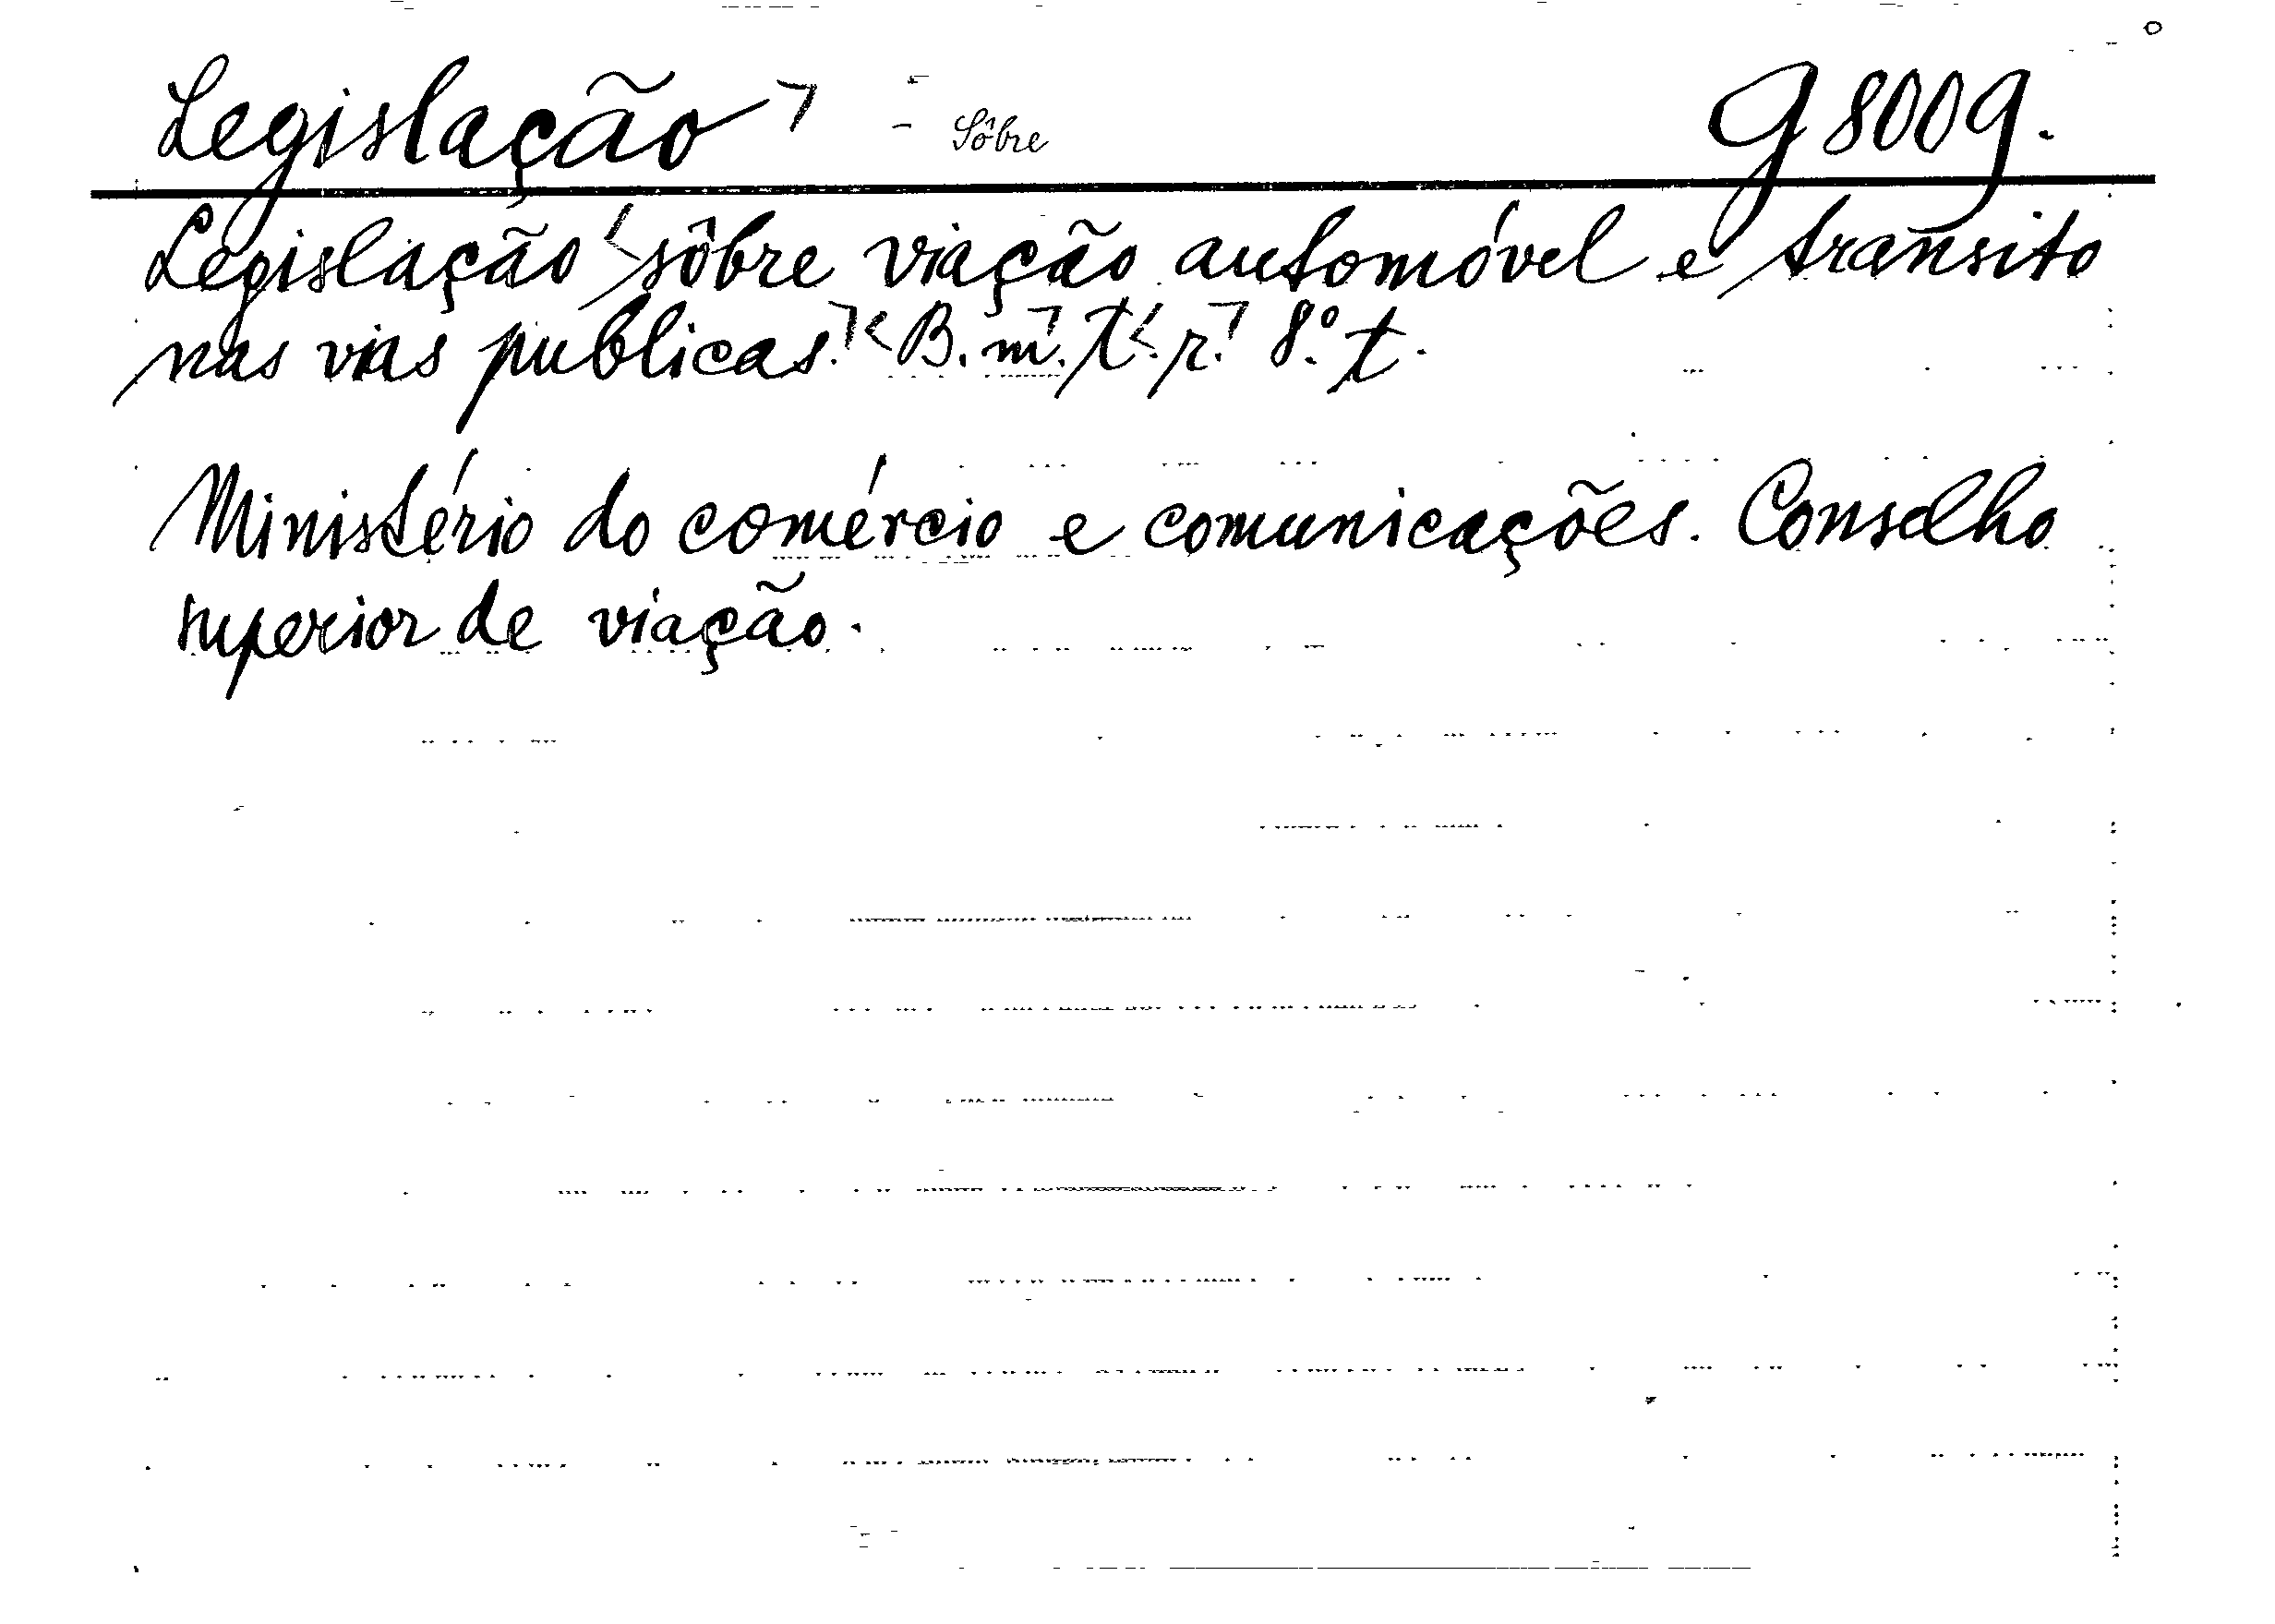 Legislação - Sôbre g 8009.
Legislação sôbre viação automóvel e trânsito
nas vias publicas. B. m. t. r. 8.º t.
Ministério do comércio e comunicações. Conselho
superior de viação.